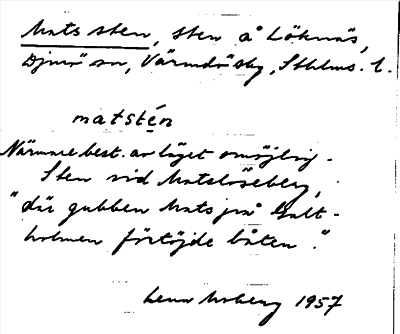 Matssten, sten å Löknäs,
Djurö sn, Värmdö sky, Sthlms. l.
matstén
Närmare best. av läget omöjlig.
Sten vid Matslöseberg,
"där gubben Mats på Galt-
holmen förtöjde båten."
Lena Moberg 1957